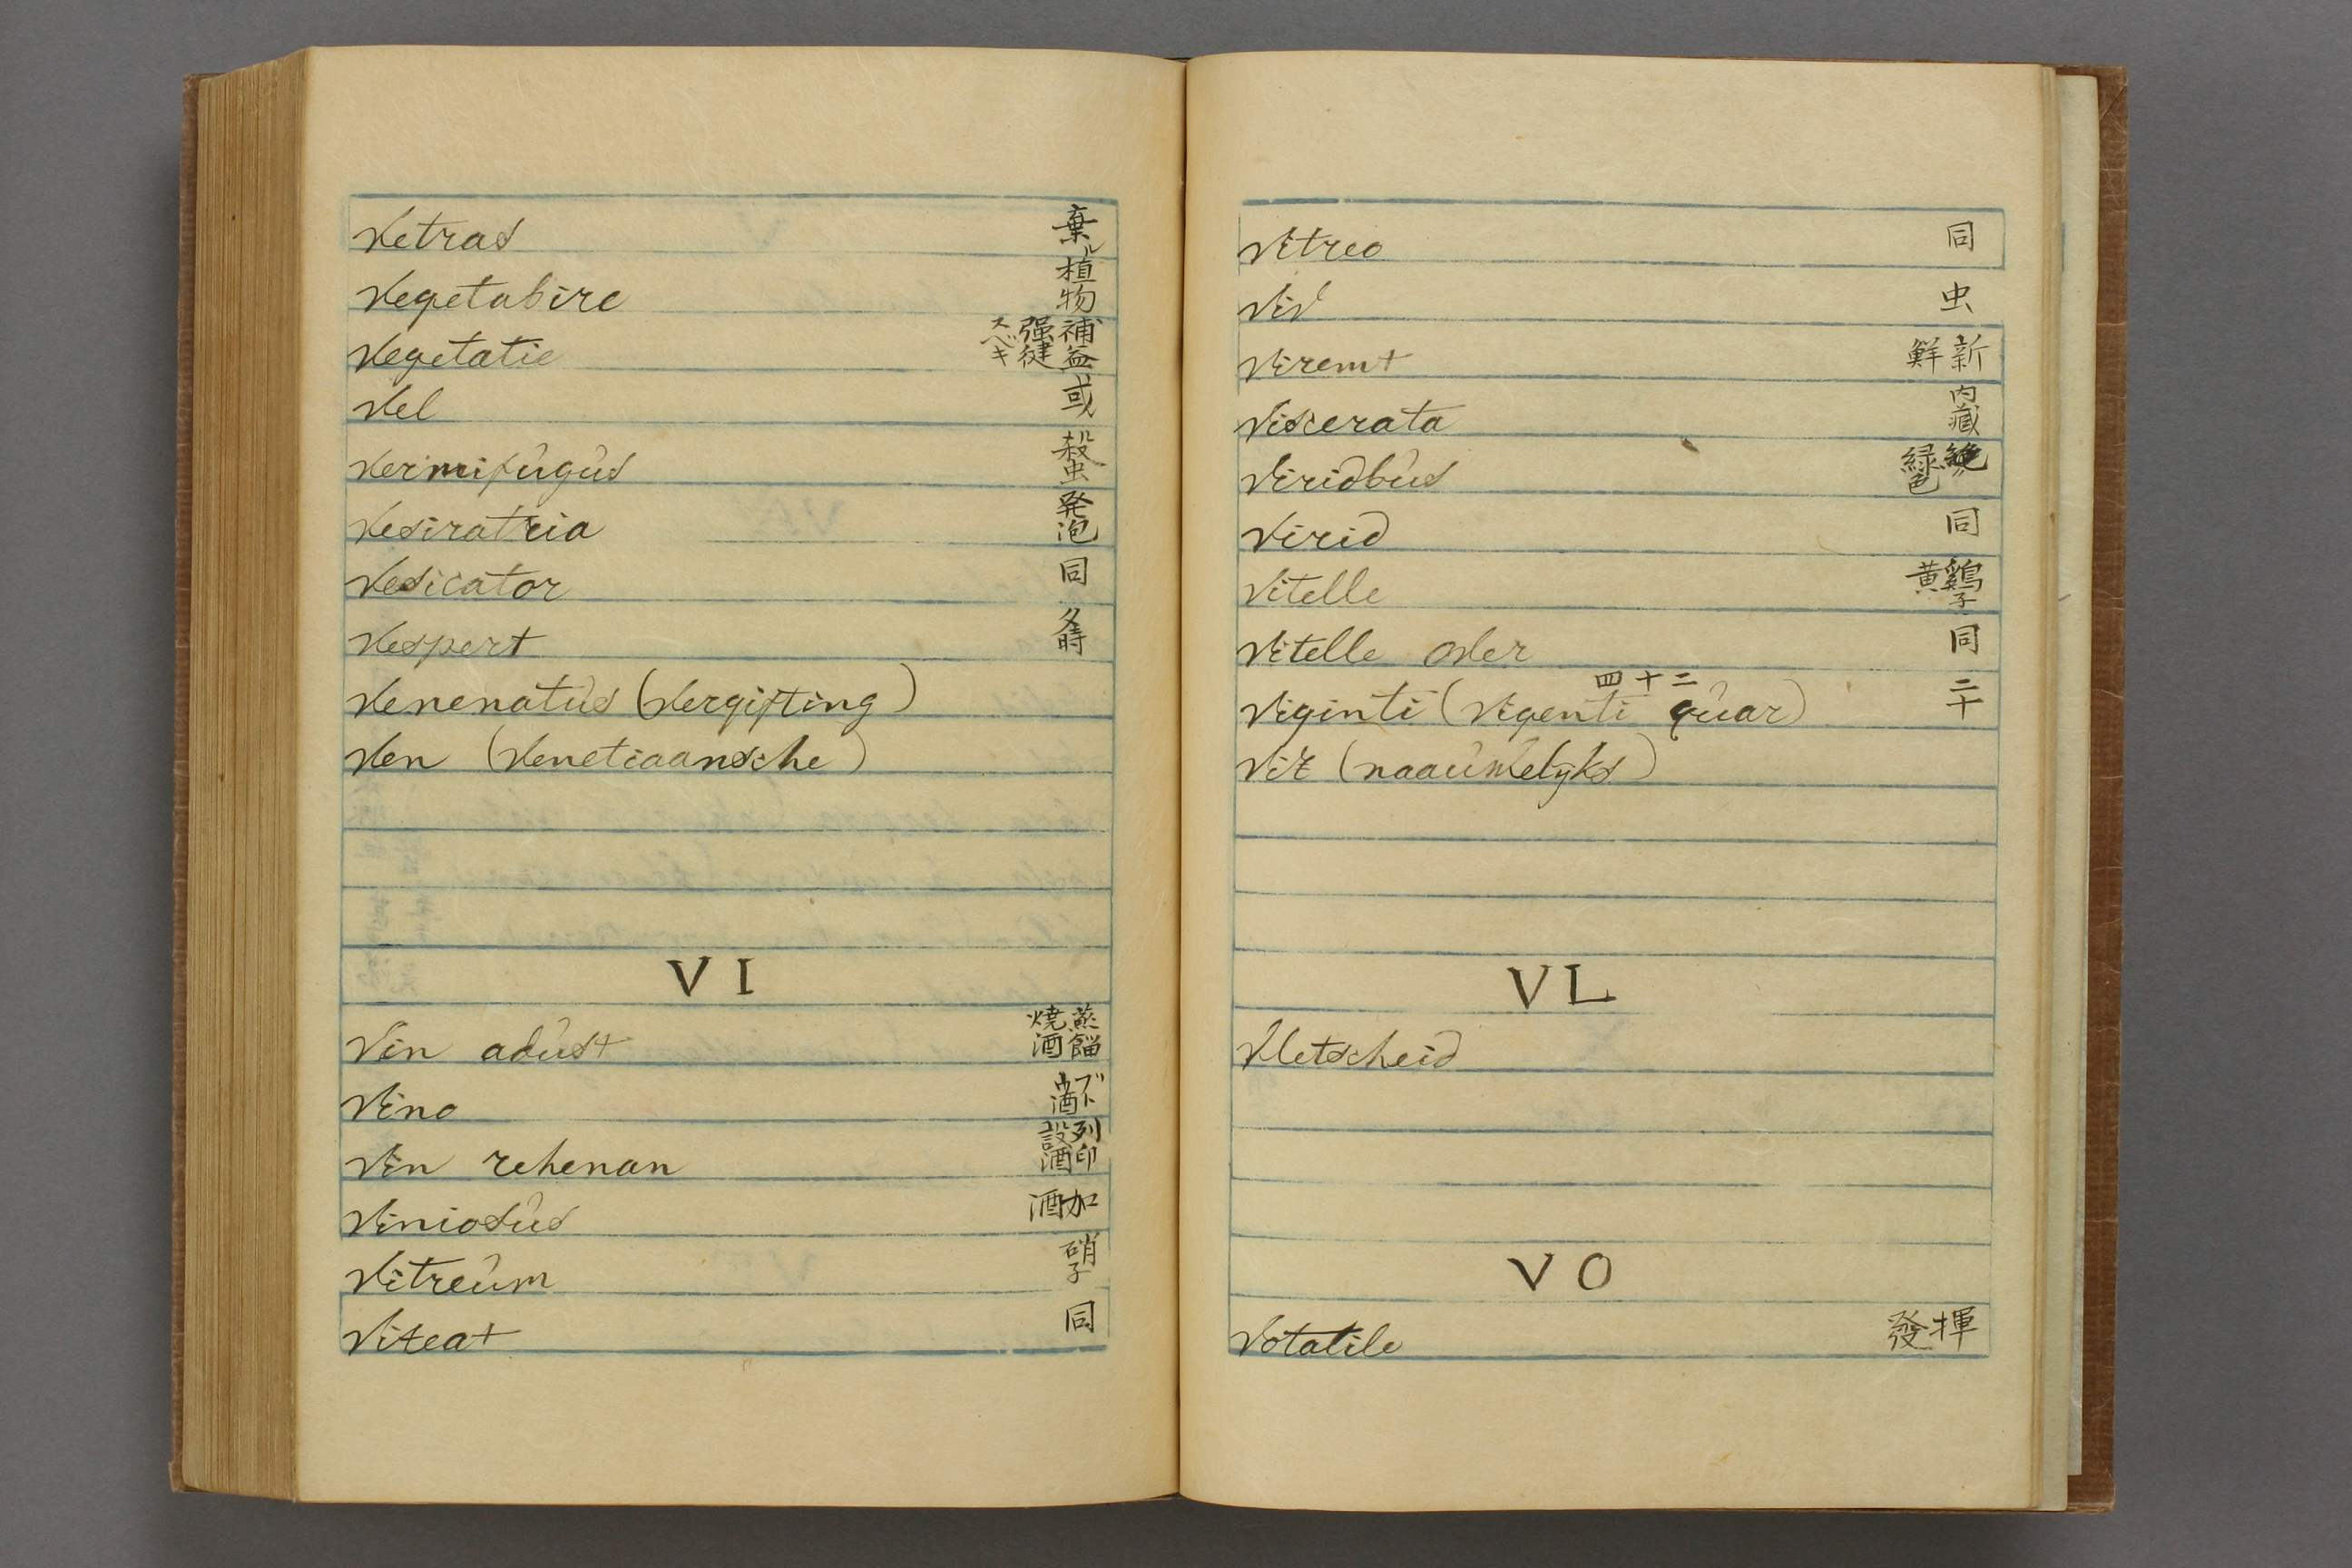 Vetras 棄ル
Vegetabire 植物
Vegetatie 補益 强健 スベキ
Vel 或
Vermifugus 殺虫
Vesiratria 発泡
Vesicator 同
Vespert 夕時
Venenatus (Vergifting)
Ven (Venetiaansche)
VI
Vin adust 蒸餾 焼酒
Vino ブドウ酒
Vin rehenan 列印 設酒
Viniosus 加酒
Vitreum 硝子
Viteat 同
Vitreo 同
Viv 虫
Viremt 新鮮
Viscerata 内臓
Viridbus 緑色
Virid 同
Vitelle 鷄子黄
Vitelle over 同
二十四
Viginti (Vigenti quar) 二十
Vix (naauwelyks)
VL
Vletscheid
VO
Votatile 揮發